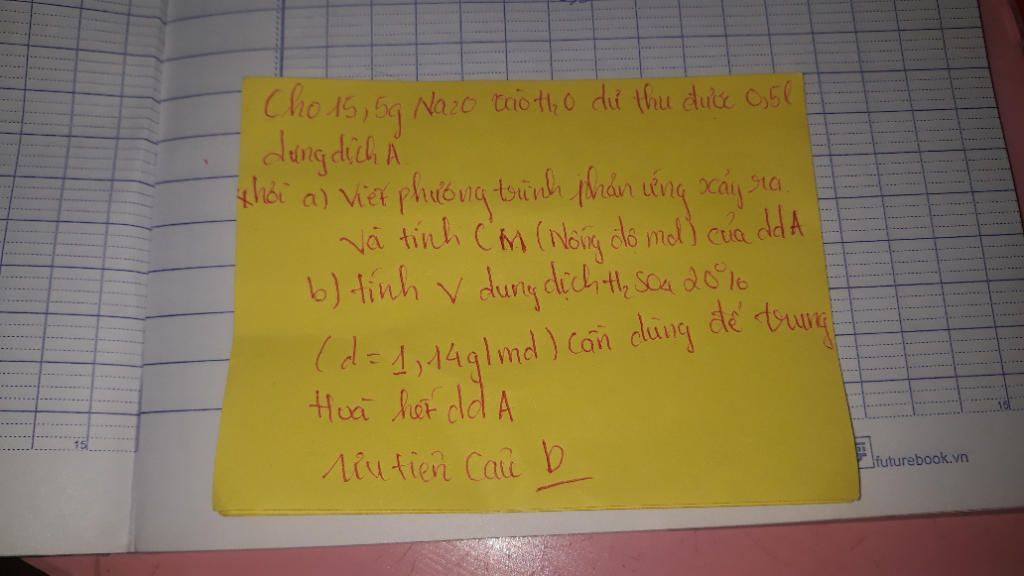 Cho 15,5g Na2O vào H2O dư thu được 0,5l
dung dịch A
Hỏi a) Viết phương trình phản ứng xảy ra.
Và tính CM (Nồng độ mol) của dd A
b) tính V dung dịch H2SO4 20%
(d = 1,14g/mol) cần dùng để trung
Hoà hết dd A
Ưu tiên câu b
15
15
futurebook.vn